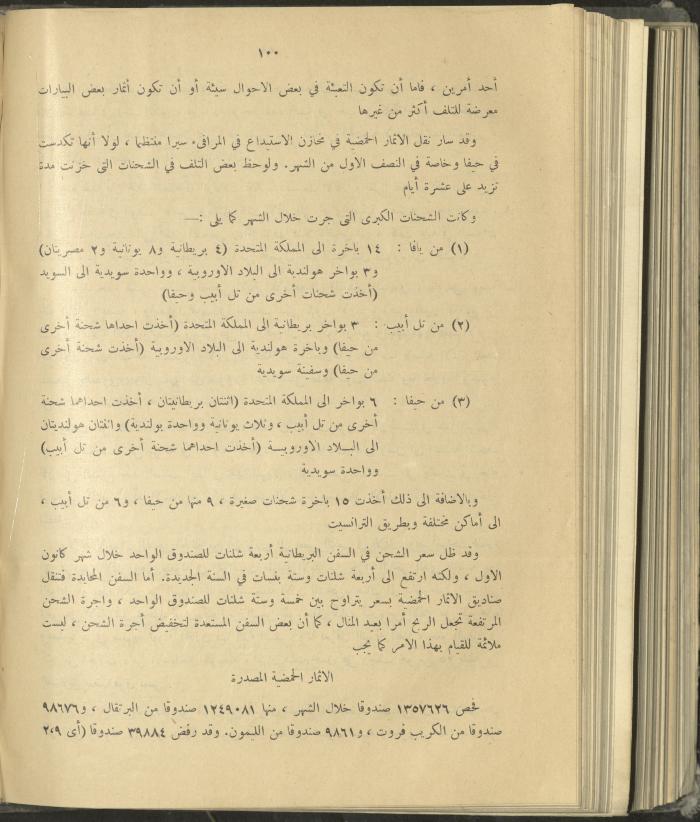 ١٠٠
أحد أمرين ، فاما أن تكون التعبئة في بعض الاحوال سيئة أو أن تكون أثمار بعض البيارات
معرضة للتلف أكثر من غيرها
وقد سار نقل الاثمار الحمضية في مخازن الاستيداع في المرافىء سيرا منتظما ، لولا أنها تكدست
في حيفا وخاصة في النصف الاول من الشهر. ولوحظ بعض التلف في الشحنات التى خزنت مدة
تزيد على عشرة أيام
وكانت الشحنات الكبرى التى جرت خلال الشهر كما يلى :—
(١) من يافا : ١٤ باخرة الى المملكة المتحدة (٤ بريطانية و٨ يونانية و٢ مصريتان)
و٣ بواخر هولندية الى البلاد الاوروبية ، وواحدة سويدية الى السويد
(أخذت شحنات أخرى من تل أبيب وحيفا)
(٢) من تل أبيب : ٣ بواخر بريطانية الى المملكة المتحدة (أخذت احداها شحنة أخرى
من حيفا) وباخرة هولندية الى البلاد الاوروبية (أخذت شحنة أخرى
من حيفا) وسفينة سويدية
(٣) من حيفا : ٦ بواخر الى المملكة المتحدة (اثنتان بريطانيتان ، أخذت احداهما شحنة
أخرى من تل أبيب ، وثلاث يونانية وواحدة بولندية) واثنتان هولنديتان
الى البلاد الاوروبية (أخذت احداهما شحنة أخرى من تل أبيب)
وواحدة سويدية
وبالاضافة الى ذلك أخذت ١٥ باخرة شحنات صغيرة ، ٩ منها من حيفا ، و٦ من تل أبيب ،
الى أماكن مختلفة وبطريق الترانسيت
وقد ظل سعر الشحن في السفن البريطانية أربعة شلنات للصندوق الواحد خلال شهر كانون
الاول ، ولكنه ارتفع الى أربعة شلنات وستة بنسات في السنة الجديدة. أما السفن المحايدة فتنقل
صناديق الاثمار الحمضية بسعر يتراوح بين خمسة وستة شلنات للصندوق الواحد ، واجرة الشحن
المرتفعة تجعل الربح أمرا بعيد المنال ، كما أن بعض السفن المستعدة لتخفيض أجرة الشحن ، ليست
ملائمة للقيام بهذا الامر كما يجب
الاثمار الحمضية المصدرة
فحص ١٣٥٧٦٢٦ صندوقا خلال الشهر ، منها ١٢٤٩٠٨١ صندوقا من البرتقال ، و٩٨٦٧٦
صندوقا من الكريب فروت ، و٩٨٦١ صندوقا من الليمون. وقد رفض ٣٩٨٨٤ صندوقا (أى ٢،٩